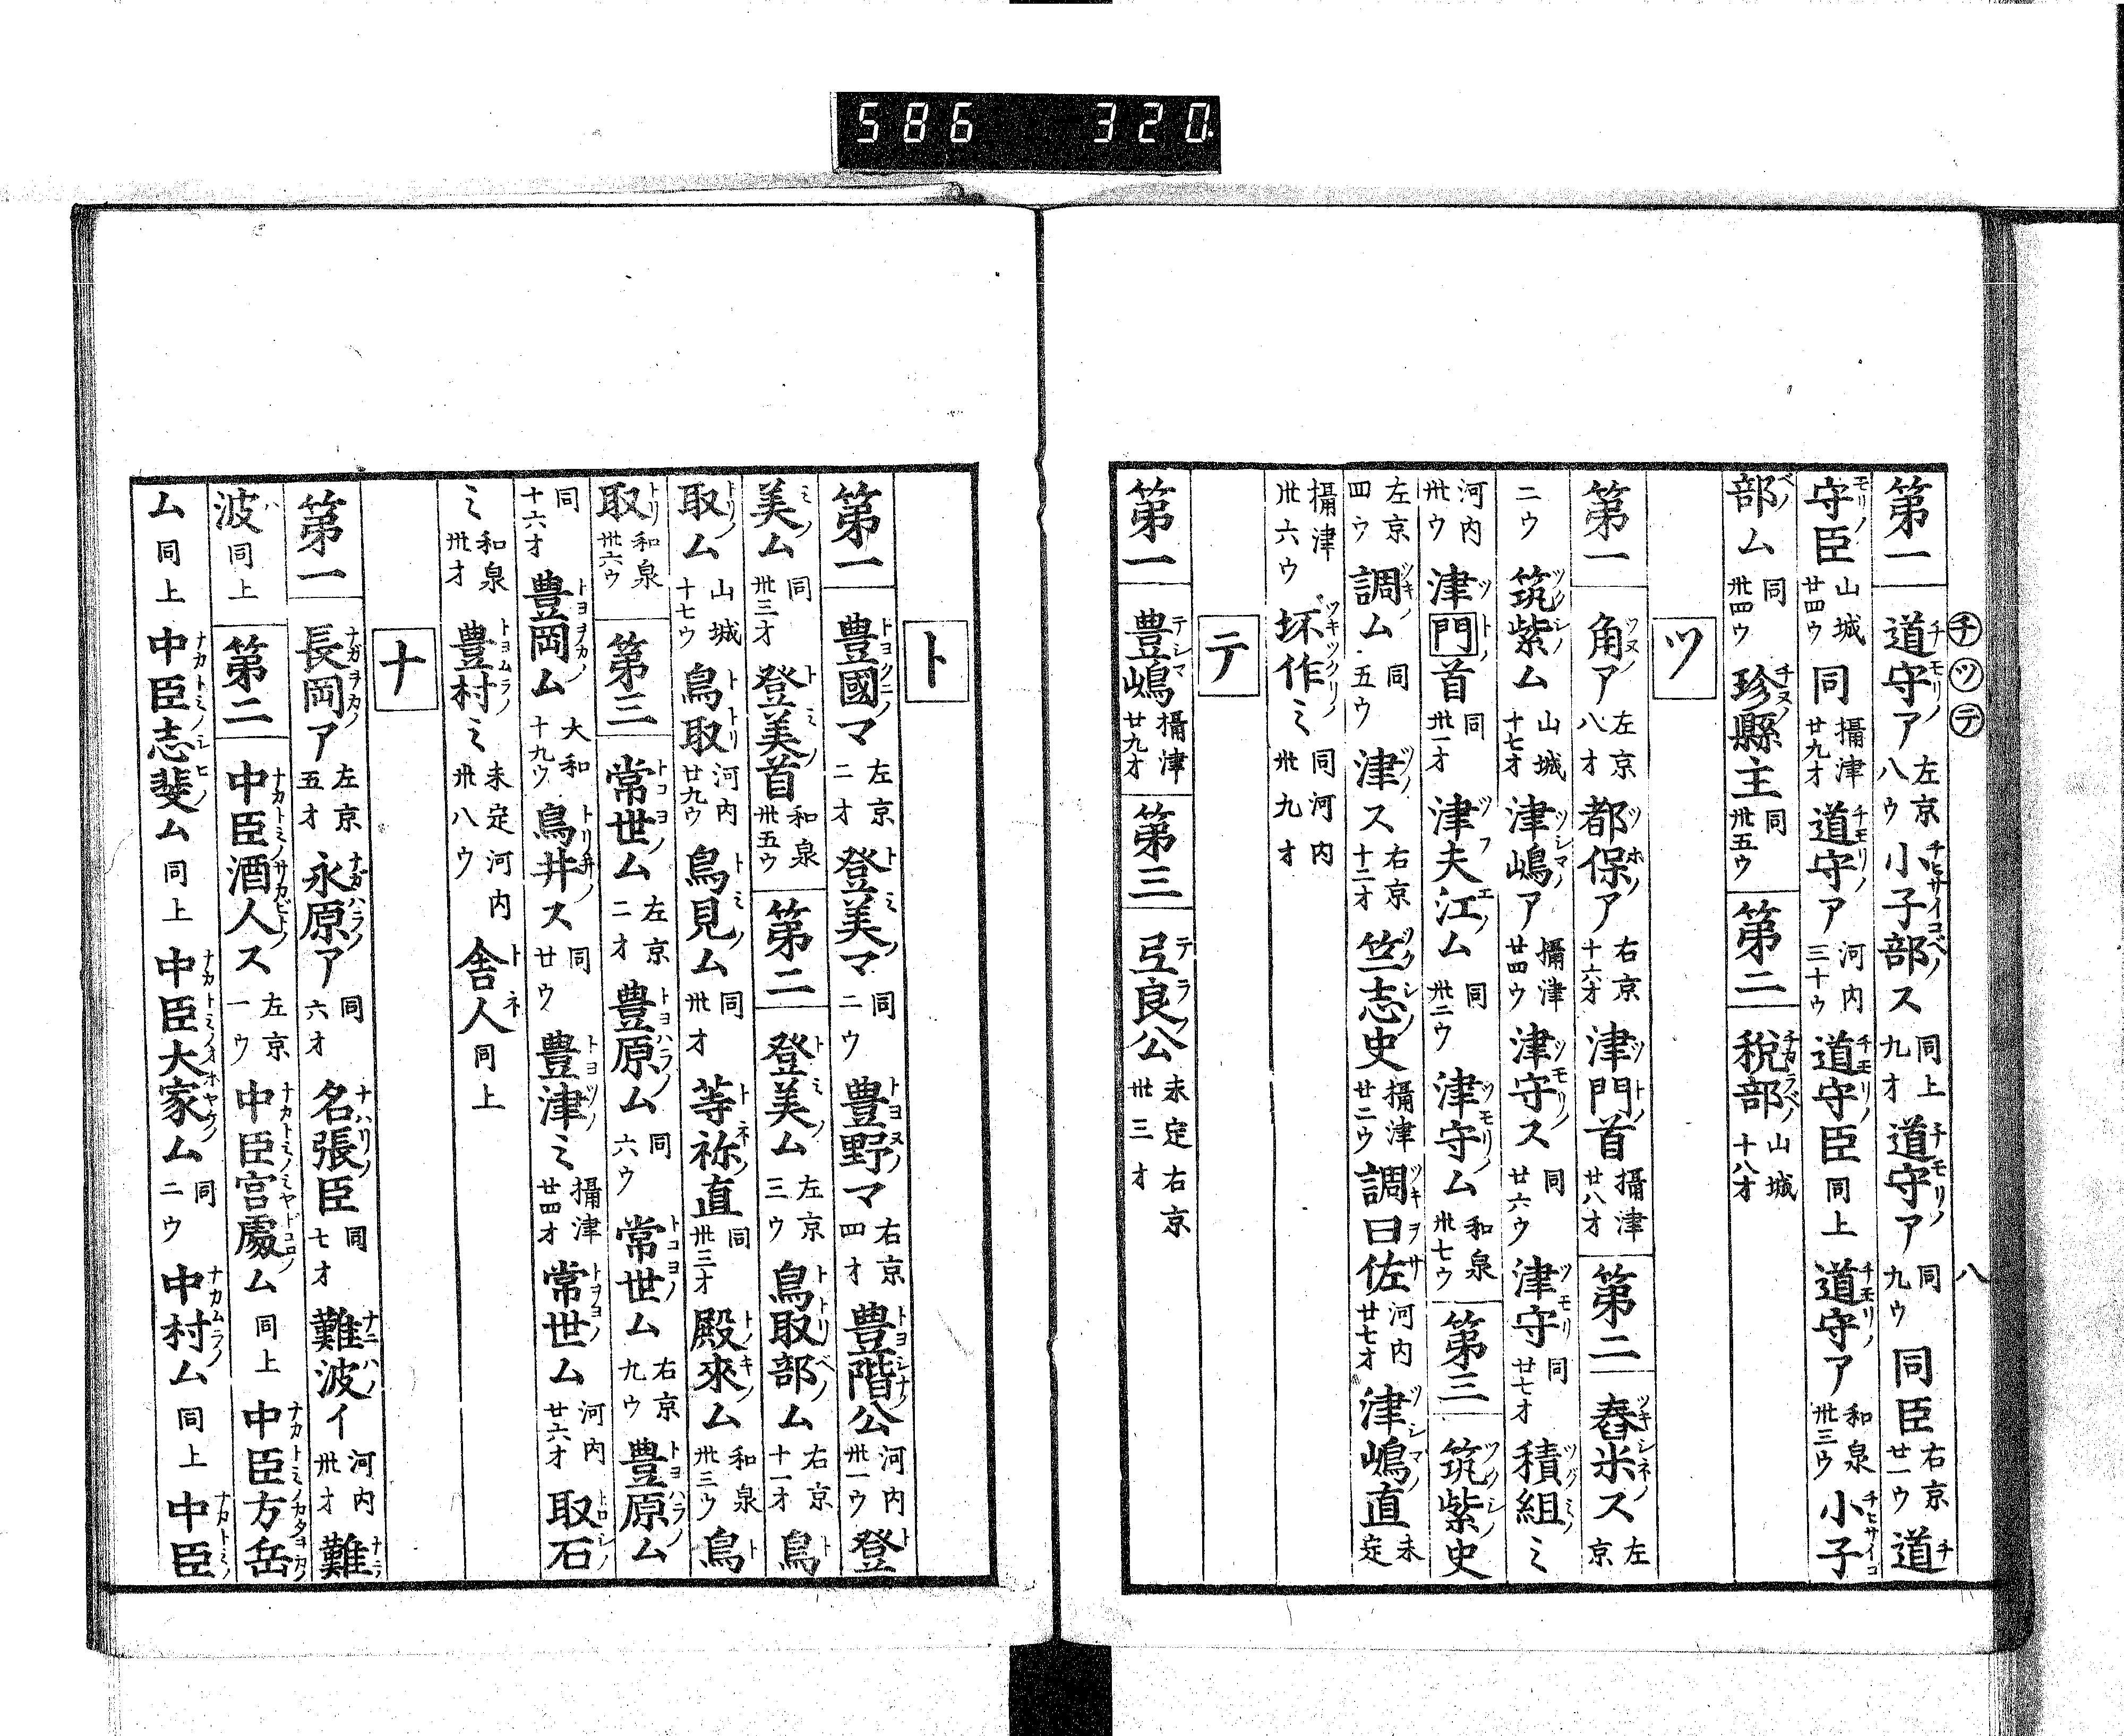 586 320
チ ツ テ 八
第一 道守ア 左京八ウ 小子部ス 同上九オ 道守ア 同九ウ 同臣 右京廿一ウ 道
守臣 山城廿四ウ 同 攝津廿九オ 道守ア 河内三十ウ 道守臣 同上 道守ア 和泉卅三ウ 小子
部ム 同卅四ウ 珍縣主 同卅五ウ 第二 税部 山城十八オ
ツ
第一 角ア 左京八オ 都保ア 右京十六オ 津門首 攝津廿八オ 第二 舂米ス 左京
二ウ 筑紫ム 山城十七オ 津嶋ア 攝津廿四ウ 津守ス 同廿六ウ 津守 同廿七オ 積組ミ
河内卅ウ 津門首 同卅一オ 津夫江ム 同卅二ウ 津守ム 和泉卅七ウ 第三 筑紫史
左京四ウ 調ム 同五ウ 津ス 右京十二オ 竺志史 攝津廿二ウ 調曰佐 河内廿七オ 津嶋直 未定
攝津卅六ウ 坏作ミ 同河内卅九オ
テ
第一 豊嶋 攝津廿九オ 第三 弖良公 未定右京卅三オ
ト
第一 豊國マ 左京二オ 登美マ 同二ウ 豊野マ 右京四オ 豊階公 河内卅一ウ 登
美ム 同卅三オ 登美首 和泉卅五ウ 第二 登美ム 左京三ウ 鳥取部ム 右京十一オ 鳥
取ム 山城十七ウ 鳥取 河内廿九ウ 鳥見ム 同卅オ 等祢直 同卅三オ 殿來ム 和泉卅三ウ 鳥
取 和泉卅六ウ 第三 常世ム 左京二オ 豊原ム 同六ウ 常世ム 右京九ウ 豊原ム
同十六オ 豊岡ム 大和十九ウ 鳥井ス 同廿ウ 豊津ミ 攝津廿四オ 常世ム 河内廿六オ 取石
ミ 和泉卅オ 豊村ミ 未定河内卅八ウ 舎人 同上
ナ
第一 長岡ア 左京五オ 永原ア 同六オ 名張臣 同七オ 難波イ 河内卅オ 難
波 同上 第二 中臣酒人ス 左京一ウ 中臣宮處ム 同上 中臣方岳
ム 同上 中臣志斐ム 同上 中臣大家ム 同二ウ 中村ム 同上 中臣